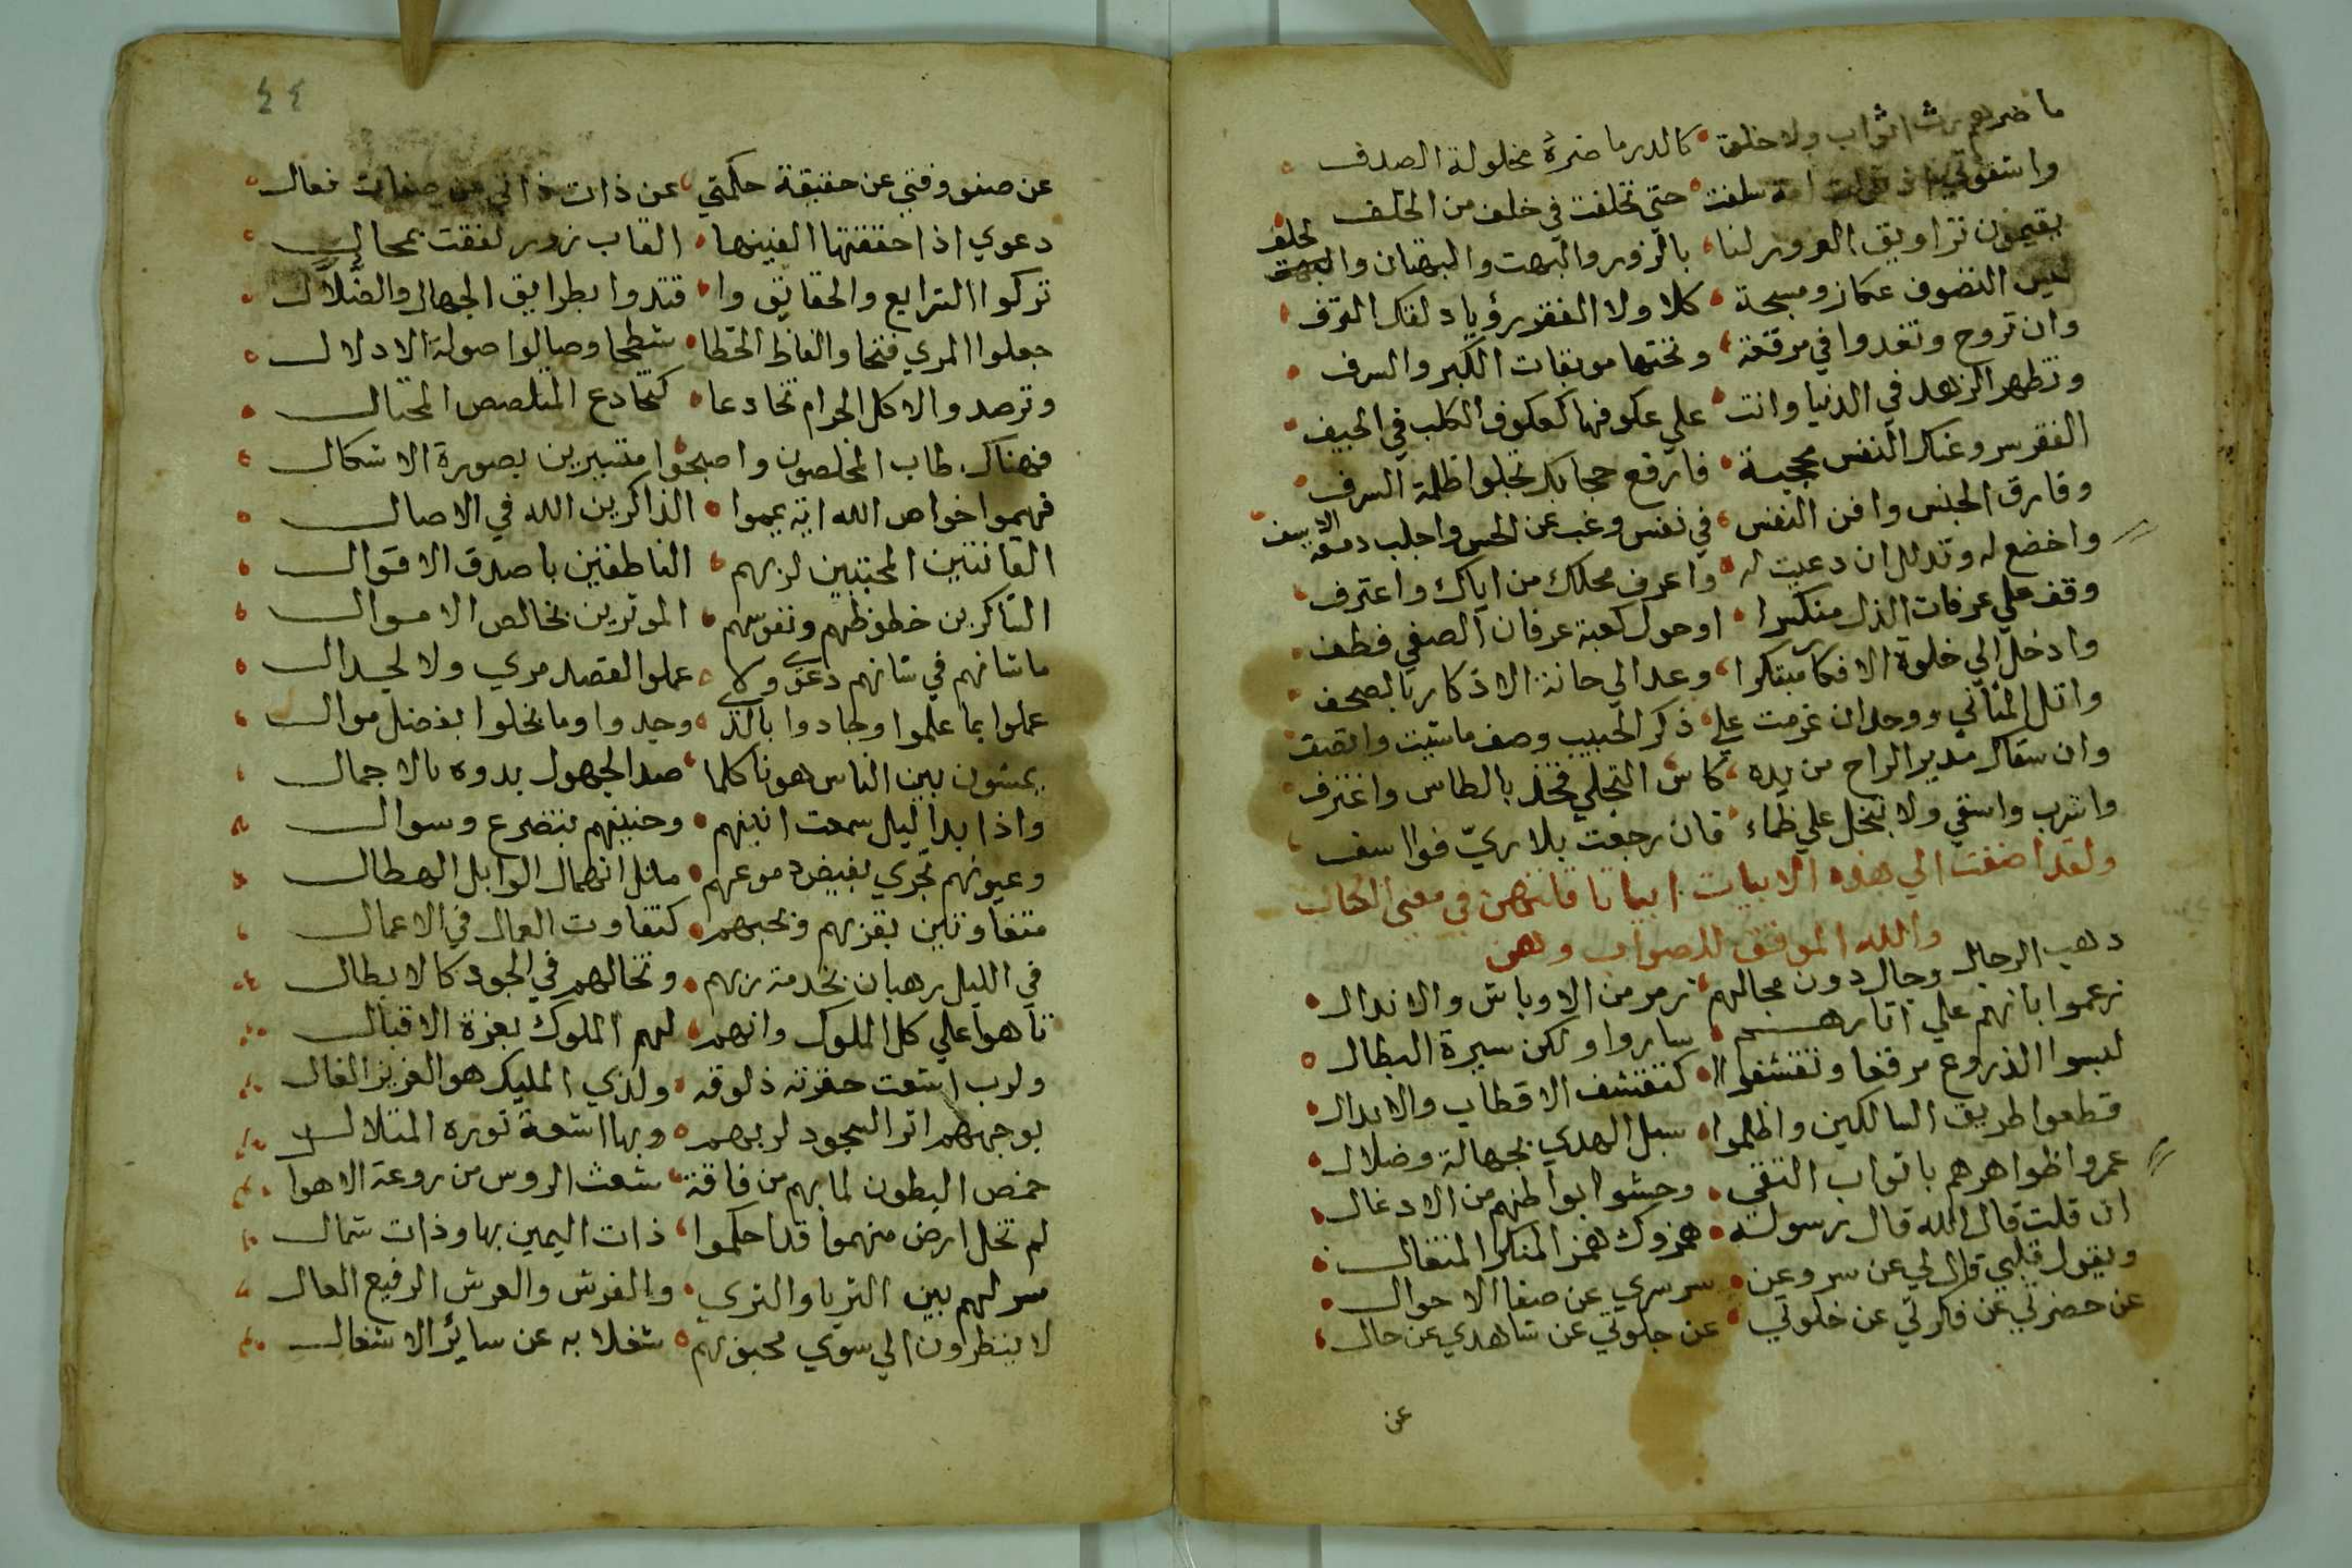 ما ضرهم رث اثواب ولا خلق كالدر ما ضره مخلولة الصدف
واشقوتي سلفت حتي تخلفت في خلف من الخلف
يقيمون تزاويق الغرور لنا بالزور والبهت والبهتان والبهت لحلف
ليس التصوف عكاز ومسبحة كلا ولا الفقر رؤيا ذلك الترف
وان تروح وتغدوا في مرقعة وتحتها موبقات الكبر والسرف
وتظهر الزهد في الدنيا وانت علي عكوفها كعكوف الكلب في الجيف
الفقر سر وعنك النفس محجبة فارفع حجابك تجلوا ظلمة السرف
وفارق الجنس وافن النفس في نفس وغب عن الحس واجلب دمعة الاسف
واخضع له وتذلل ان دعيت له واعرف محلك من اباك واعترف
وقف علي عرفات الذل منكسرا وحول كعبة عرفان الصفي فطف
وادخل الي خلوة الافكار مبتكرا وعد الي حانة الاذكار بالصحف
واتل المثاني ووحد ان عزمت علي ذكر الحبيب وصف ماشيت واتصف
وان سقاك مدير الراح من يده كاس التجلي فخذ بالطاس واغترف
واشرب واسقي ولا تبخل علي ظماء فان رجعت بلا ريّ فوا اسف
ولقد اضفت الي هذه الابيات ابياتا قلتهن في معني الحال
والله الموفق للصواب وهي
ذهب الرجال وحال دون مجالهم زمر من الاوباش والانذال
زعموا بانهم علي اثارهم ساروا ولكن سيرة البطال
لبسوا الدروع مرقعا وتقشفوا كتقشف الاقطاب والابدال
قطعوا طريق السالكين واظلموا سبل الهدي بجهالة وضلال
عمروا ظواهرهم باثواب التقي وحشوا بواطنهم من الادغال
ان قلت قال الله قال رسوله همزوك همز المنكر المتغال
ويقول قلبي قال لي عن سر وعن سر سري عن صفا الاحوال
عن حضرتي عن فكرتي عن خلوتي عن جلوتي عن شاهدي عن حال
عن
٤٤
عن صفو وقتي عن حقيقة حكمتي عن ذات ذاتي عن صفات فعال
دعوي اذا حققتها الفيتها القاب زور لفقت بمحال
تركوا الشرايع والحقايق وا قتدوا بطرايق الجهال والضلال
جعلوا المري فتحا والفاظ الخطا شطحا وصالوا صولة الادلال
وترصدوا الاكل الحرام تخادعا كتخادع المتلصص المحتال
فهناك طاب المخلصون واصبحوا متسيرين بصورة الاشكال
فهموا خواص الله اية يمموا الذاكرين الله في الاصال
القانتين المخبتين لربهم الناطقين باصدق الاقوال
التاركين حظوظهم ونفوسهم الموثرين بخالص الاموال
ما شانهم في شانهم دعوي ولا عملوا لقصد مري ولا لجدال
عملوا بما علموا وجادوا بالذي وجدوا وما بخلوا بفضل موال
يمشون بين الناس هونا كلما صد الجهول بدوه بالاجمال
واذا بدا ليل سمعت انينهم وحنينهم بتضرع وسوال
وعيونهم تجري بفيض دموعهم مثل انهمال الوابل الهطال
متفاوتين بقربهم وبحبهم كتفاوت العمال في الاعمال
في الليل رهبان بخدمة ربهم وتخالهم في الجود كالابطال
تاهوا علي كل الملوك وانهم لهم الملوك بعزة الاقبال
ولرب اشعث حقرته ذلوقه ولذي المليك هو العزيز الغال
بوجههم اثر السجود لربهم وبها اشعة نوره المتلال
خمص البطون لما بهم من فاقة شعث الروس من روعة الاهوا
لم تخل ارض منهموا قد احكموا ذات اليمين بها وذات شمال
سر لهم بين الثريا والثري والفرش والعرش الرفيع العال
لا ينظرون الي سوي محبوبهم شغلا به عن سائر الاشغال